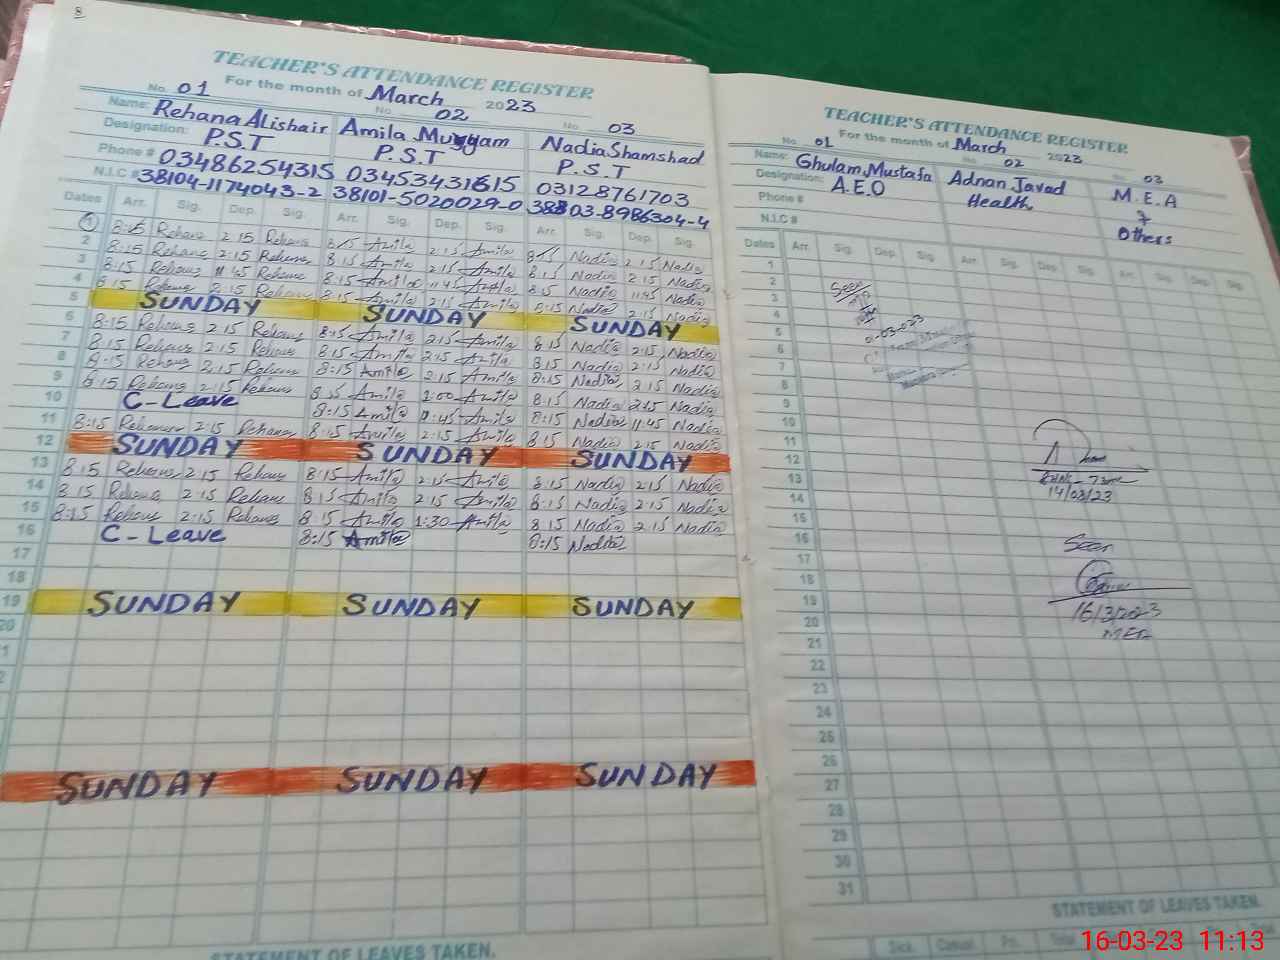 8
TEACHER'S ATTENDANCE REGISTER
For the month of March 2023
No. 01 No. 02 No. 03
Name: Rehana Alishair Amila Muryam Nadia Shamshad
Designation: P.S.T P.S.T P.S.T
Phone # 03486254315 03453431615 03128761703
N.I.C # 38104-1174043-2 38101-5020029-0 38303-8986304-4
Dates Arr. Sig. Dep. Sig. Arr. Sig. Dep. Sig. Arr. Sig. Dep. Sig.
1 8:15 Rehana 2:15 Rehana 8:15 Amila 2:15 Amila 8:15 Nadia 2:15 Nadia
2 8:15 Rehana 2:15 Rehana 8:15 Amila 2:15 Amila 8:15 Nadia 2:15 Nadia
3 8:15 Rehana 11:45 Rehana 8:15 Amila 11:45 Amila 8:15 Nadia 11:45 Nadia
4 8:15 Rehana 2:15 Rehana 8:15 Amila 2:15 Amila 8:15 Nadia 2:15 Nadia
5 SUNDAY SUNDAY SUNDAY
6 8:15 Rehana 2:15 Rehana 8:15 Amila 2:15 Amila 8:15 Nadia 2:15 Nadia
7 8:15 Rehana 2:15 Rehana 8:15 Amila 2:15 Amila 8:15 Nadia 2:15 Nadia
8 8:15 Rehana 2:15 Rehana 8:15 Amila 2:15 Amila 8:15 Nadia 2:15 Nadia
9 8:15 Rehana 2:15 Rehana 8:15 Amila 1:00 Amila 8:15 Nadia 2:15 Nadia
10 C-Leave 8:15 Amila 11:45 Amila 8:15 Nadia 11:45 Nadia
11 8:15 Rehana 2:15 Rehana 8:15 Amila 2:15 Amila 8:15 Nadia 2:15 Nadia
12 SUNDAY SUNDAY SUNDAY
13 8:15 Rehana 2:15 Rehana 8:15 Amila 2:15 Amila 8:15 Nadia 2:15 Nadia
14 8:15 Rehana 2:15 Rehana 8:15 Amila 2:15 Amila 8:15 Nadia 2:15 Nadia
15 8:15 Rehana 2:15 Rehana 8:15 Amila 1:30 Amila 8:15 Nadia 2:15 Nadia
16 C-Leave 8:15 Amila 8:15 Nadia
17
18
19 SUNDAY SUNDAY SUNDAY
20
1
2
SUNDAY SUNDAY SUNDAY
STATEMENT OF LEAVES TAKEN.
TEACHER'S ATTENDANCE REGISTER
For the month of March 2023
No. 01 No. 02 No. 03
Name: Ghulam Mustafa Adnan Javad M.E.A
Designation: A.E.O Health 7
Phone # Others
N.I.C #
Dates Arr. Sig. Dep. Sig. Arr. Sig. Dep. Sig. Arr. Sig. Dep. Sig.
1
2
3 Seen
4
5 03-023
6
7
8
9
10
11
12
13
14 14/03/23
15
16 Seen
17
18
19 16/3/2023
20 MEA
21
22
23
24
25
26
27
28
29
30
31
STATEMENT OF LEAVES TAKEN.
Sick. Casual. Pri. Total
16-03-23 11:13